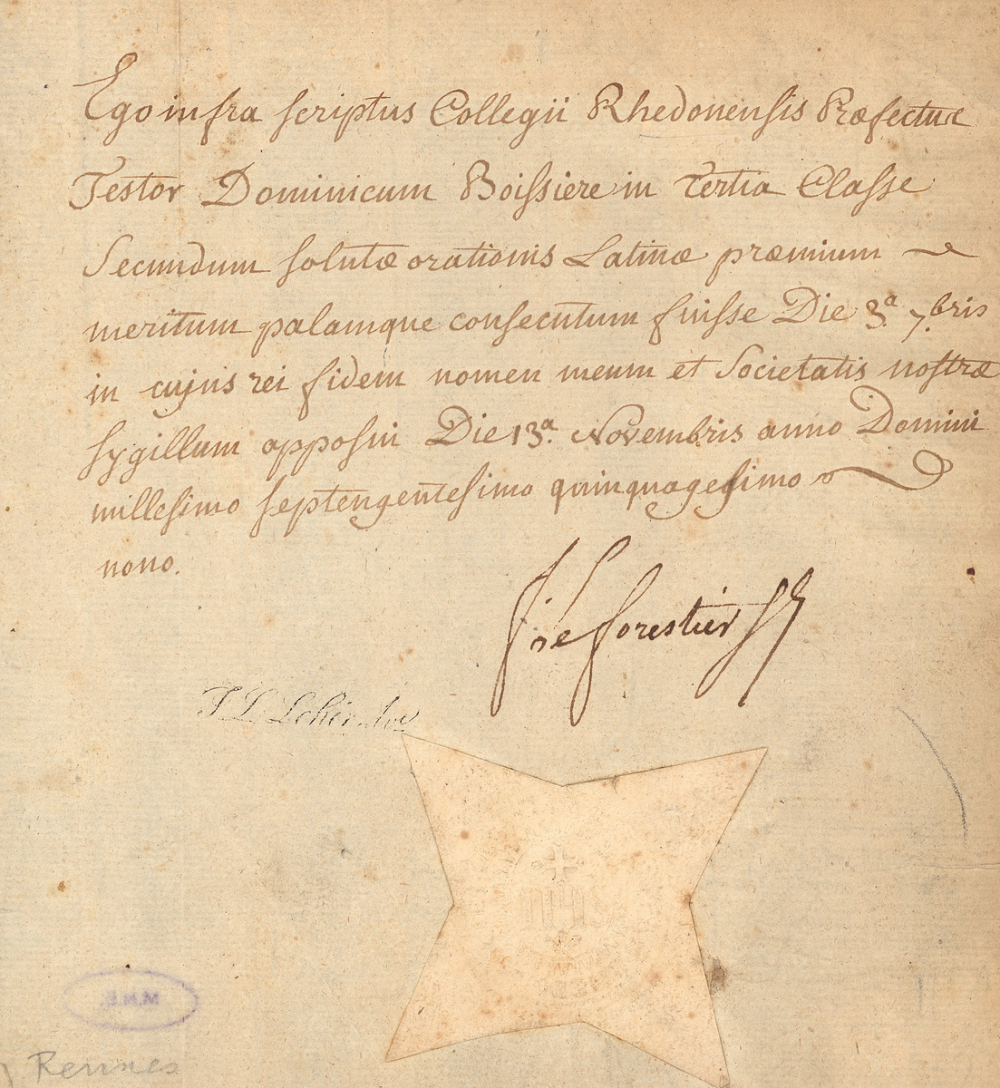 Ego infra scriptus Collegii Rhedonensis Præfectus
Testor Dominicum Boissiere in Tertia Classe
Secundum solutæ orationis Latinæ præmium
meritum palamque consecutum fuisse Die 3.ª 7.bris
in cujus rei fidem nomen meum et Societatis nostræ
sygillum apposui Die 13.ª Novembris anno Domini
millesimo septengentesimo quinquagesimo
nono.
forestier
J L
Rennes